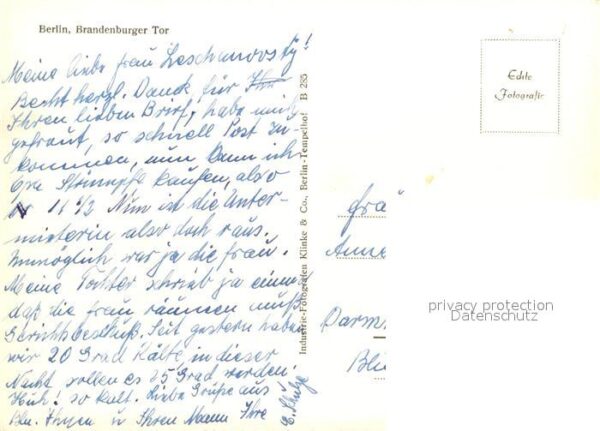 Berlin, Brandenburger Tor
Meine liebe Frau Leschanovsky!
Recht herzl. Danck für Ihr
Ihren lieben Brief, habe mich
gefraut, so schnell Post zu
kommen, nun kann ich
Opa Strümpfe kaufen, also
Nr 11 1/2 Nun ist die Unter-
mieterin also doch raus.
Unmöglich war ja die Frau.
Meine Tochter schrieb ja einmal
daß die Frau räumen muß
Gerichtsbeschluß. Seit gestern haben
wir 20 Grad Kälte, in dieser
Nacht sollen es 25 Grad werden.
Huh! so kalt. Liebe Grüße aus
Bln. Ihnen u Ihren Mann Ihre
E. Schulze
Industrie-Fotografen Klinke & Co., Berlin-Tempelhof B 285
Echte
Fotografie
Frau
Anne
Darm
privacy protection
Datenschutz